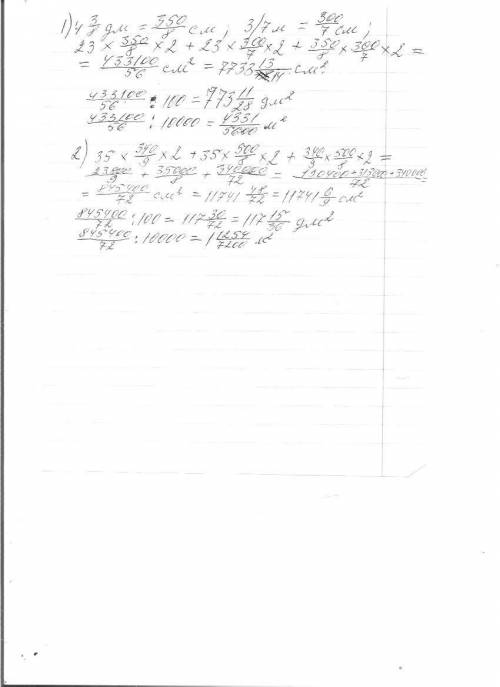 1) 4 3/8 дм = 350/8 см; 3/7 м = 300/7 см;
23 × 350/8 × 2 + 23 × 300/7 × 2 + 350/8 × 300/7 × 2 =
= 433100/56 см² = 7733 13/14 см².
433100/56 : 100 = 77 3 11/28 дм²
433100/56 : 10000 = 4331/5600 м²
2) 35 × 340/9 × 2 + 35 × 500/8 × 2 + 340/9 × 500/8 × 2 =
23800/9 + 35000/8 + 340000/72 = 190400+315000+340000/72 =
= 845400/72 см² = 11741 48/72 = 11741 6/9 см²
845400/72 : 100 = 117 30/72 = 117 15/36 дм²
845400/72 : 10000 = 1 1254/7200 м²